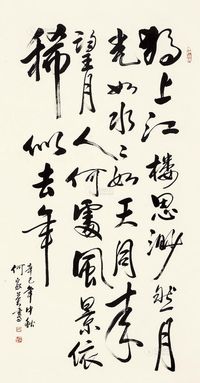 独上江楼思渺然月
光如水水如天同来
望月人何处风景依
稀似去年
辛巳年中秋
何家英书